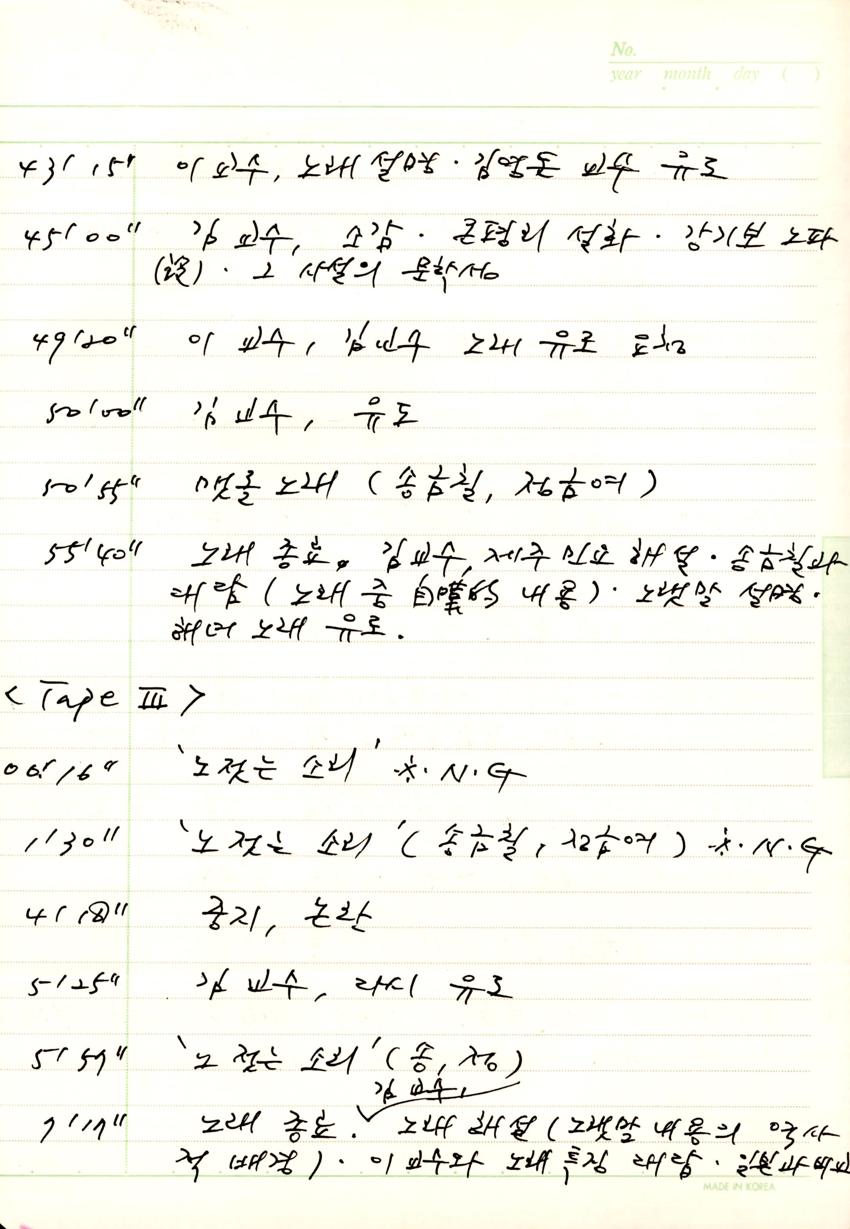 No.
year month day ( )
43' 15" 이 교수, 노래 설명 · 김영돈 교수 유도
45' 00" 김 교수, 소감 · 큰평리 설화 · 강기보 노파
(談) · 그 사설의 문학성
49' 20" 이 교수, 김교수 노래 유도 요청
50' 00" 김 교수, 유도
50' 55" 맷돌 노래 (송금칠, 정금여)
55' 40" 노래 종료. 김교수, 제주 민요 해설 · 송금칠과
대담 (노래 중 自嘆的 내용) · 노랫말 설명 ·
해녀 노래 유도.
< Tape Ⅲ >
00' 16" '노 젓는 소리' ※ · N · G
1' 30" '노 젓는 소리' (송금칠, 정금여) ※ · N · G
4' 18" 중지, 논란
5' 25" 김 교수, 다시 유도
5' 57" '노 젓는 소리' (송, 정)
김 교수,
7' 17" 노래 종료. 노래 해설 (노랫말 내용의 역사
적 배경) · 이 교수와 노래 특징 대담 · 일본과 비교
MADE IN KOREA